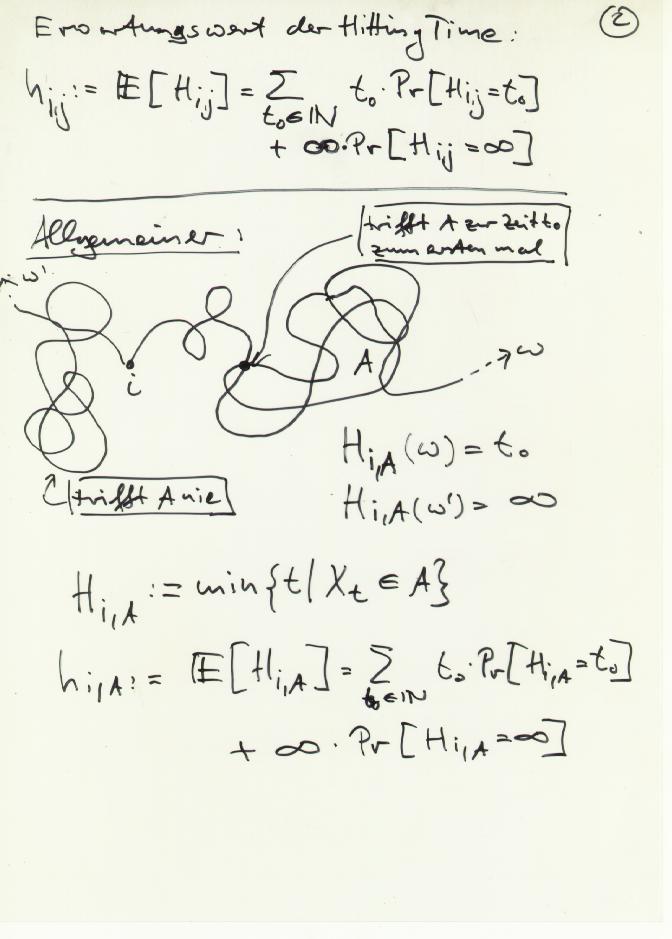 Erwartungswert der Hitting Time: ②
h_{i,j} := 𝔼[H_{i,j}] = ∑_{t₀∈ℕ} t₀·Pr[H_{i,j}=t₀]
+ ∞·Pr[H_{i,j}=∞]
Allgemeiner:
trifft A zur Zeit t₀
zum ersten mal
ω'
i
A
ω
H_{i,A}(ω) = t₀
trifft A nie
H_{i,A}(ω') = ∞
H_{i,A} := min{t | X_t ∈ A}
h_{i,A} := 𝔼[H_{i,A}] = ∑_{t₀∈ℕ} t₀·Pr[H_{i,A}=t₀]
+ ∞·Pr[H_{i,A}=∞]